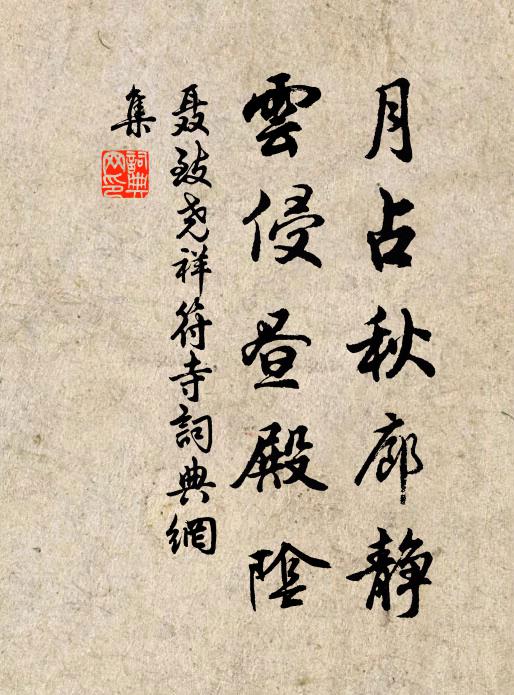 月占秋廊静
雲侵昼殿陰
聂致尧祥符寺詞典網
集
詞典
网印